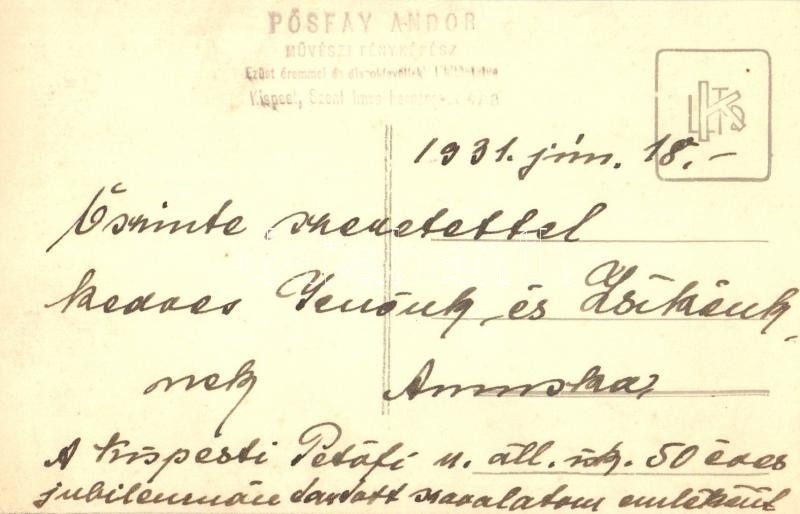 PŐSFAY ANDOR
MŰVÉSZI FÉNYKÉPÉSZ
Ezüst éremmel és díszoklevéllel kitüntetve
Kispest, Szent Imre herceg
1931. jún. 18.-
Őszinte szeretettel
kedves Jenőnk és Zsikénk
nek Annuska
A kispesti Petőfi u. áll. isk. 50 éves
jubileumán tartott szavalatom emlékéül